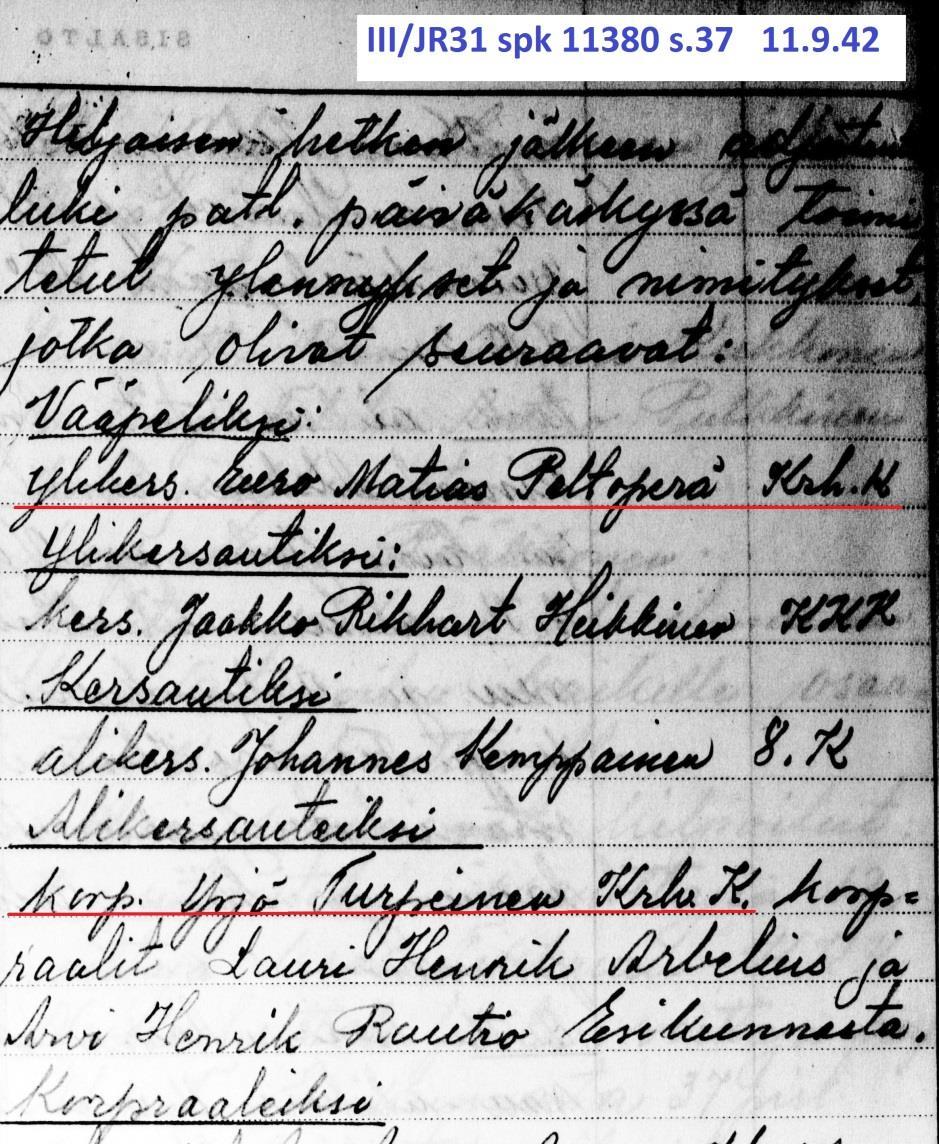 SISÄLTÖ
III/JR31 spk 11380 s.37 11.9.42
Hiljaisen hetken jälkeen adjutantti
luki patl. päiväkäskyssä toimi
tetut ylennykset ja nimitykset,
jotka olivat seuraavat:
Vääpeliksi:
ylikers. Eero Matias Peltoperä Krh.K
Ylikersantiksi:
kers. Jaakko Rikhart Heikkinen KKK
Kersantiksi
alikers. Johannes Kemppainen 8.K
Alikersanteiksi
korp. Yrjö Turpeinen Krh.K. korp=
raalit Lauri Henrik Arbelius ja
Arvi Henrik Rautio Esikunnasta.
Korpraaleiksi